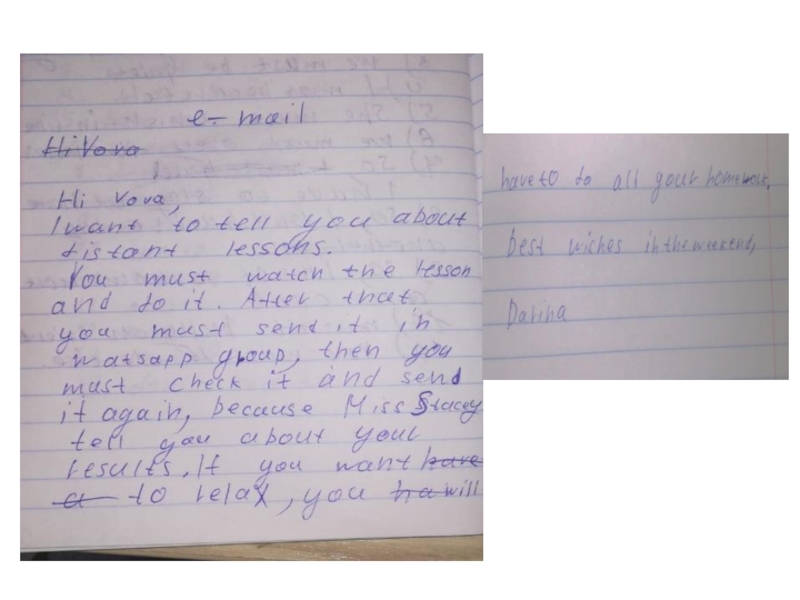 e-mail
Hi Vova
Hi Vova,
I want to tell you about
distant lessons.
You must watch the lesson
and do it. After that
you must send it in
watsapp group, then you
must check it and send
it again, because Miss Stacey
tell you about your
results. If you want have
a to relax, you ha will
have to do all your homework,
best wiches in the weekend,
Darina